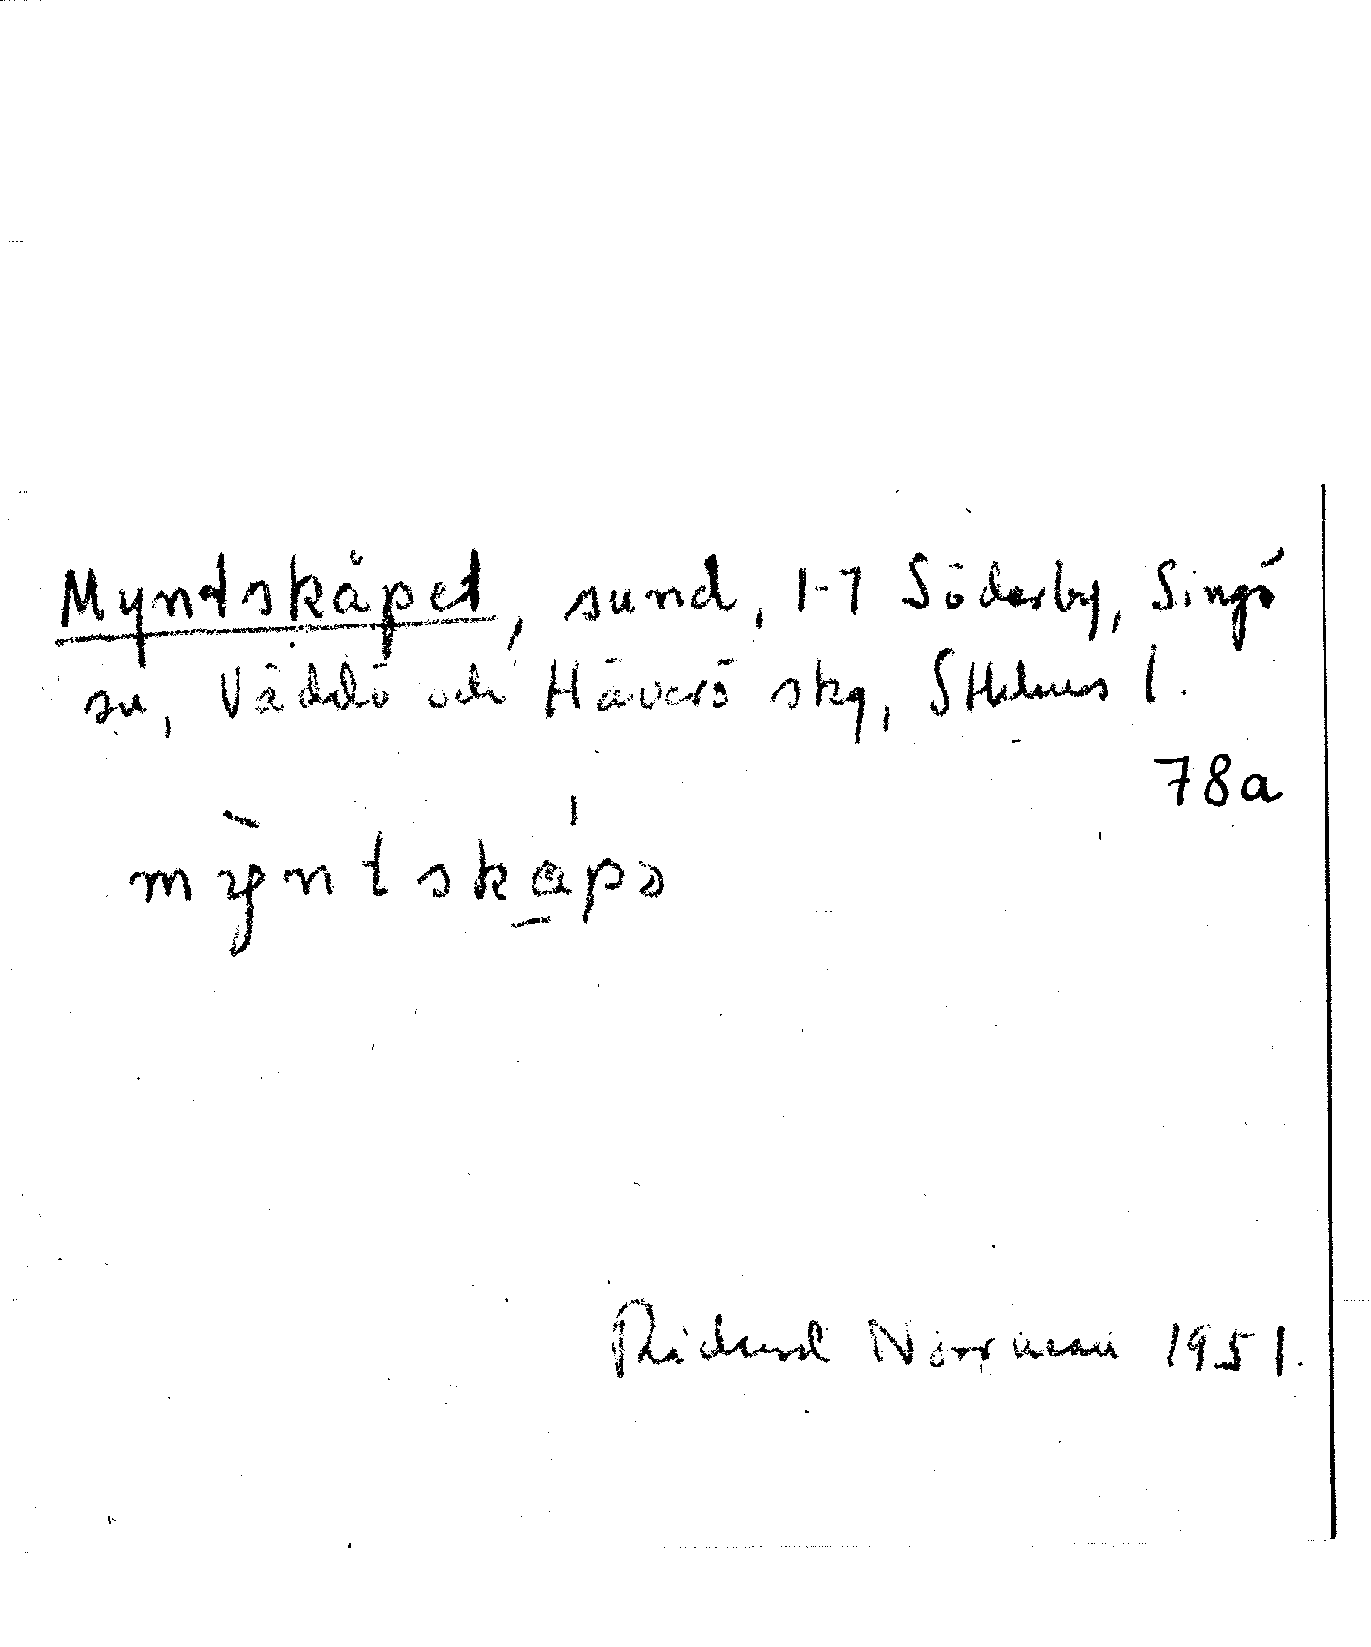 Myntskåpet, sund, 1-7 Söderby, Singö
sn, Väddö och Häverö skg, Sthlms l.
78a
mỳntskåpə
Rickard Norrman 1951.